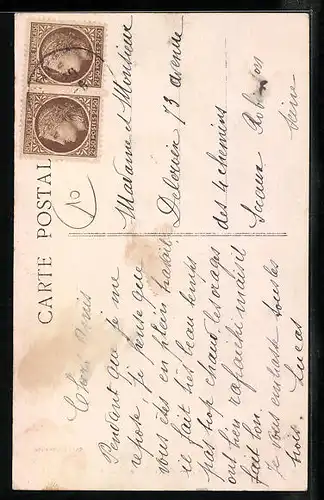 CARTE POSTALE
10
Madame et Monsieur
Delouin 73 avenue
des 4 chemins
Sceaux Robinson
Seine
Chers amis
Pendant que je me
repose je pense que
vous êtes en plein travail
il fait très beau temps
pas trop chaud les orages
ont bien rafraichi mais il
fait bon.
je vous embrasse tous les
trois. Lucas